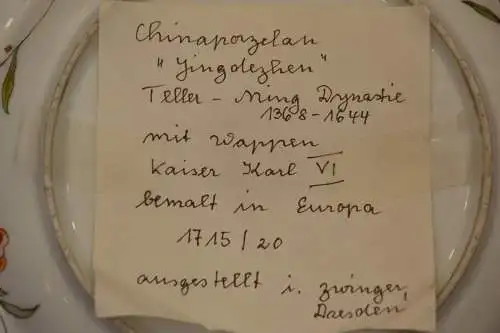 Chinaporzelan
"Jingdezhen"
Teller - Ming Dynastie
1368-1644
mit Wappen
Kaiser Karl VI
bemalt in Europa
1715/20
ausgestellt i. Zwinger,
Dresden